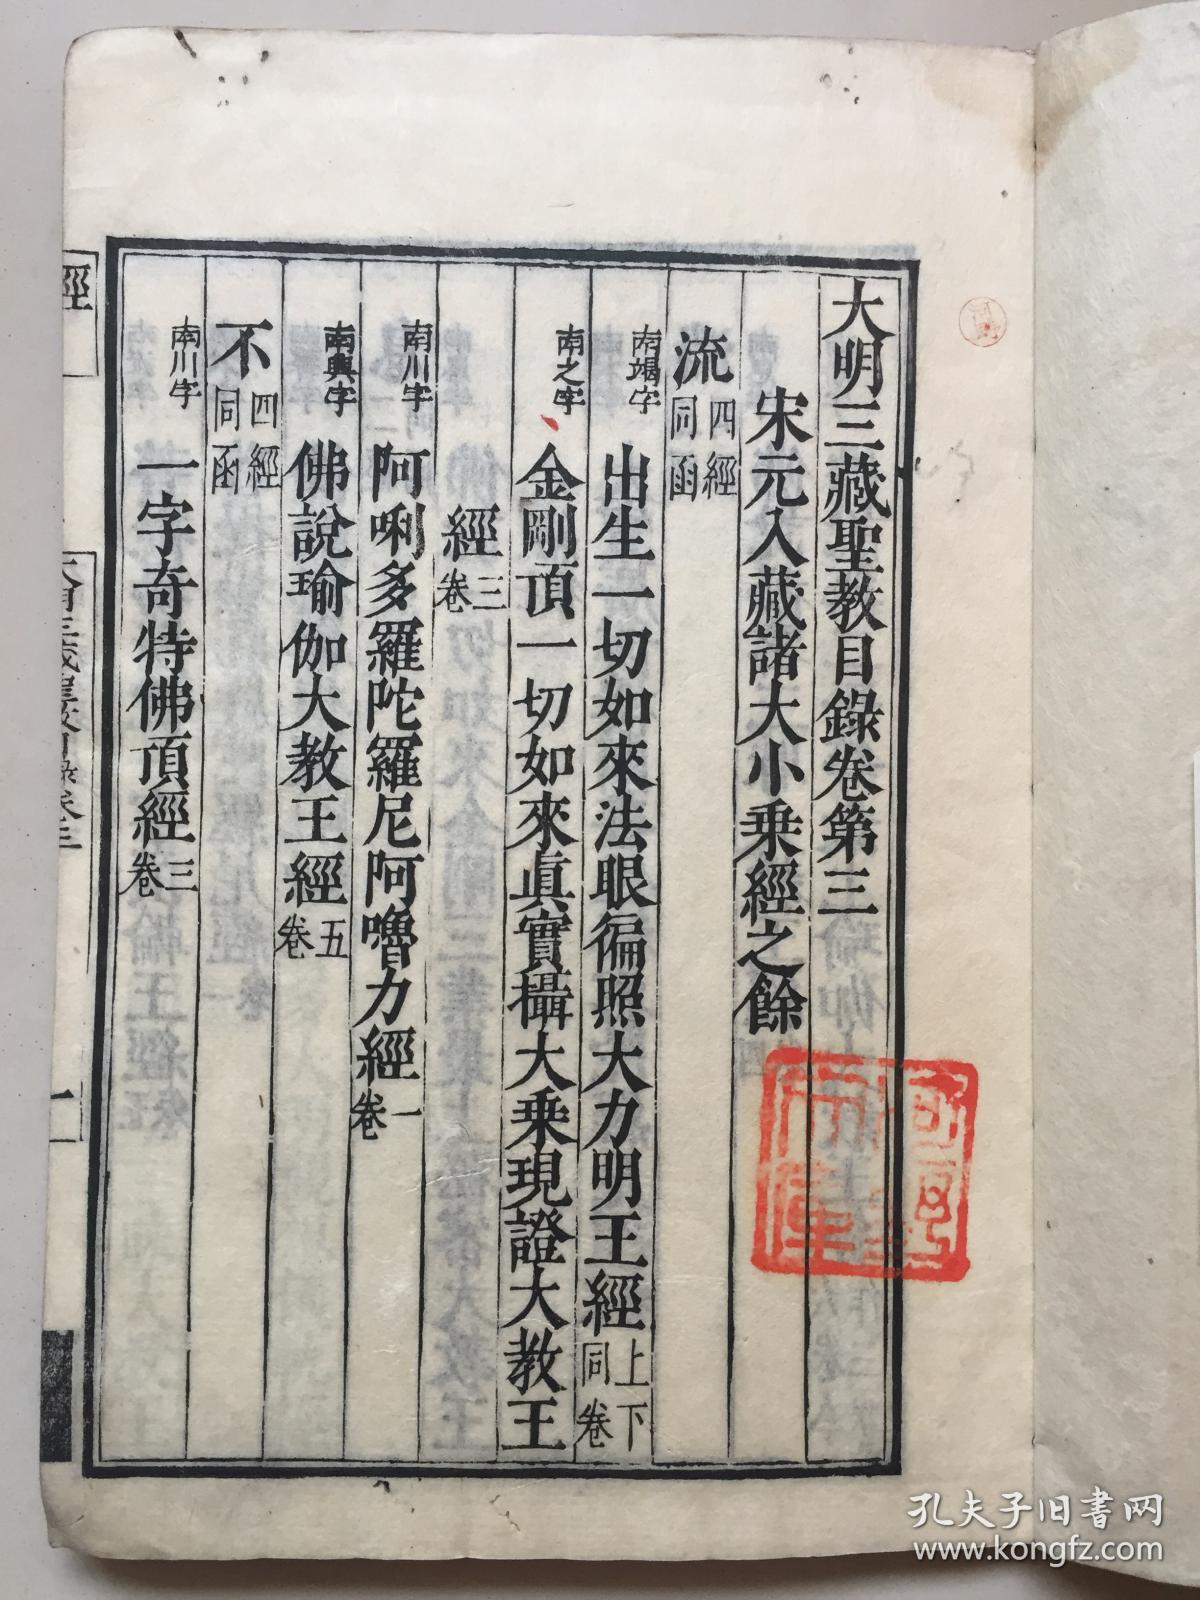 大明三藏聖教目錄卷第三
宋元入藏諸大小乘經之餘
流 四經同函
南竭字 出生一切如來法眼徧照大力明王經 上下同卷
南之字 金剛頂一切如來眞實攝大乘現證大教王
經 三卷
南川字 阿唎多羅陀羅尼阿嚕力經 一卷
南興字 佛說瑜伽大教王經 五卷
不 四經同函
南川字 一字奇特佛頂經 三卷
經
一
孔夫子旧书网
www.kongfz.com